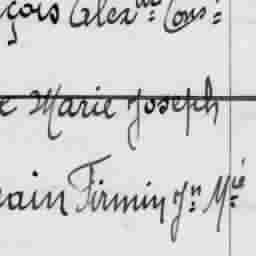 çois Alexdre Cons:
e Marie Joseph
ain Firmin Jn Mié